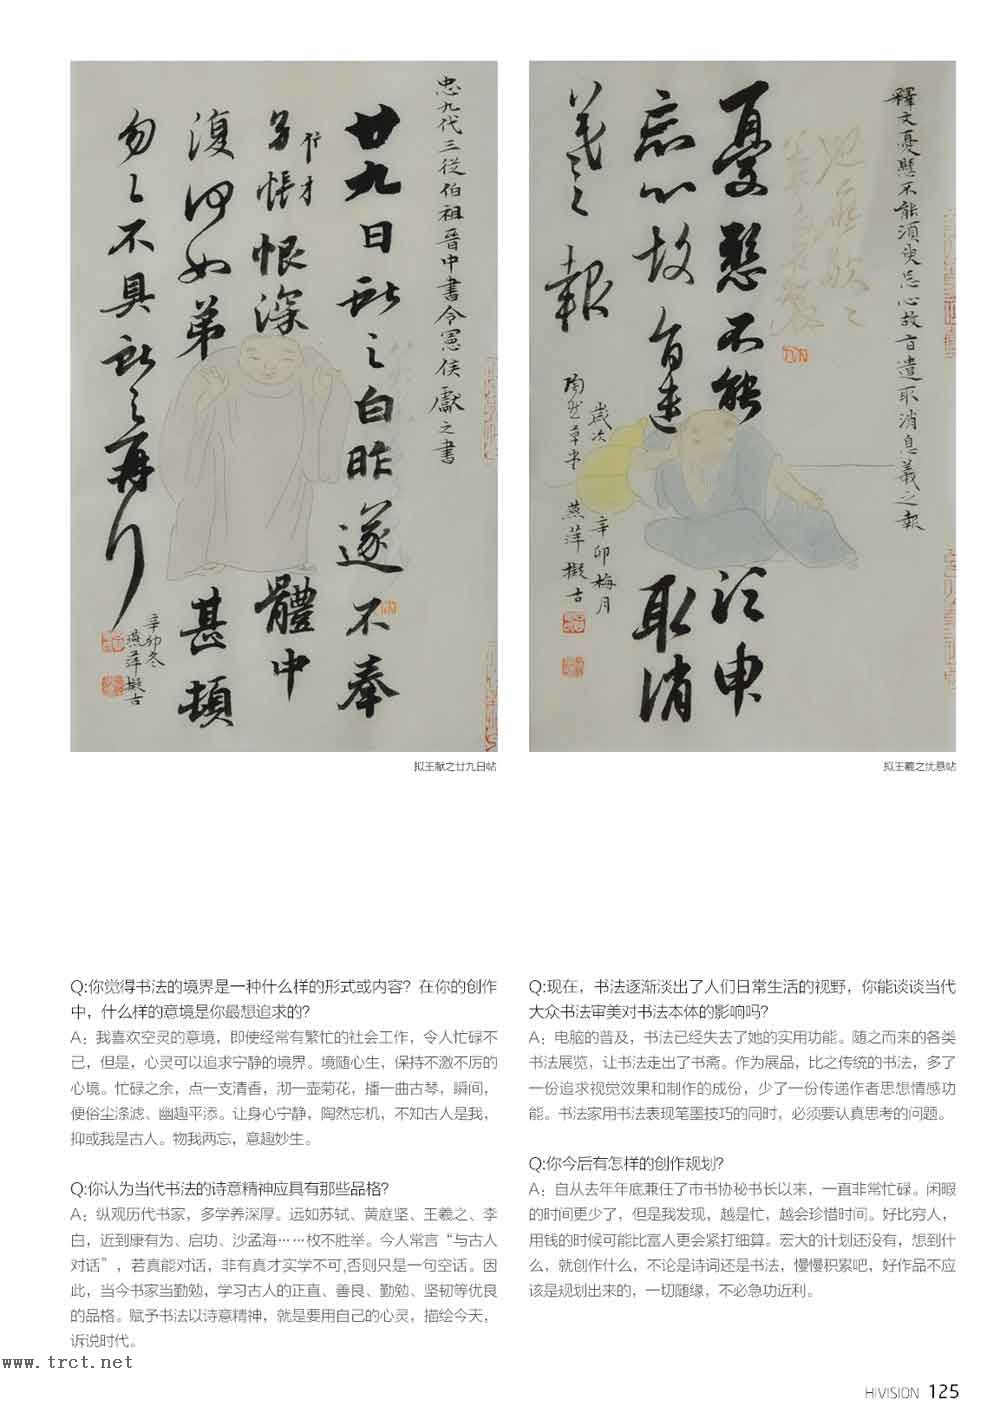 忠九代三從伯祖晉中書令憲侯獻之書
廿九日獻之白昨遂不奉
恨深體中
復何如弟甚頓
勿勿不具獻之再行
辛卯冬
燕萍擬古
釋文憂懸不能須臾忘心故旨遣取消息羲之報
憂懸不能須臾
忘心故旨遣取消
羲之報
歲次辛卯梅月
陶然草堂燕萍擬古
拟王献之廿九日帖
拟王羲之忧悬帖
Q:你觉得书法的境界是一种什么样的形式或内容？在你的创作
中，什么样的意境是你最想追求的？
A：我喜欢空灵的意境，即使经常有繁忙的社会工作，令人忙碌不
已，但是，心灵可以追求宁静的境界。境随心生，保持不激不厉的
心境。忙碌之余，点一支清香，沏一壶菊花，播一曲古琴，瞬间，
便俗尘涤滤、幽趣平添。让身心宁静，陶然忘机，不知古人是我，
抑或我是古人。物我两忘，意趣妙生。
Q:你认为当代书法的诗意精神应具有那些品格？
A：纵观历代书家，多学养深厚。远如苏轼、黄庭坚、王羲之、李
白，近到康有为、启功、沙孟海……枚不胜举。今人常言“与古人
对话”，若真能对话，非有真才实学不可,否则只是一句空话。因
此，当今书家当勤勉，学习古人的正直、善良、勤勉、坚韧等优良
的品格。赋予书法以诗意精神，就是要用自己的心灵，描绘今天，
诉说时代。
Q:现在，书法逐渐淡出了人们日常生活的视野，你能谈谈当代
大众书法审美对书法本体的影响吗？
A：电脑的普及，书法已经失去了她的实用功能。随之而来的各类
书法展览，让书法走出了书斋。作为展品，比之传统的书法，多了
一份追求视觉效果和制作的成份，少了一份传递作者思想情感功
能。书法家用书法表现笔墨技巧的同时，必须要认真思考的问题。
Q:你今后有怎样的创作规划？
A：自从去年年底兼任了市书协秘书长以来，一直非常忙碌。闲暇
的时间更少了，但是我发现，越是忙，越会珍惜时间。好比穷人，
用钱的时候可能比富人更会紧打细算。宏大的计划还没有，想到什
么，就创作什么，不论是诗词还是书法，慢慢积累吧，好作品不应
该是规划出来的，一切随缘，不必急功近利。
www.trct.net
HIVISION 125